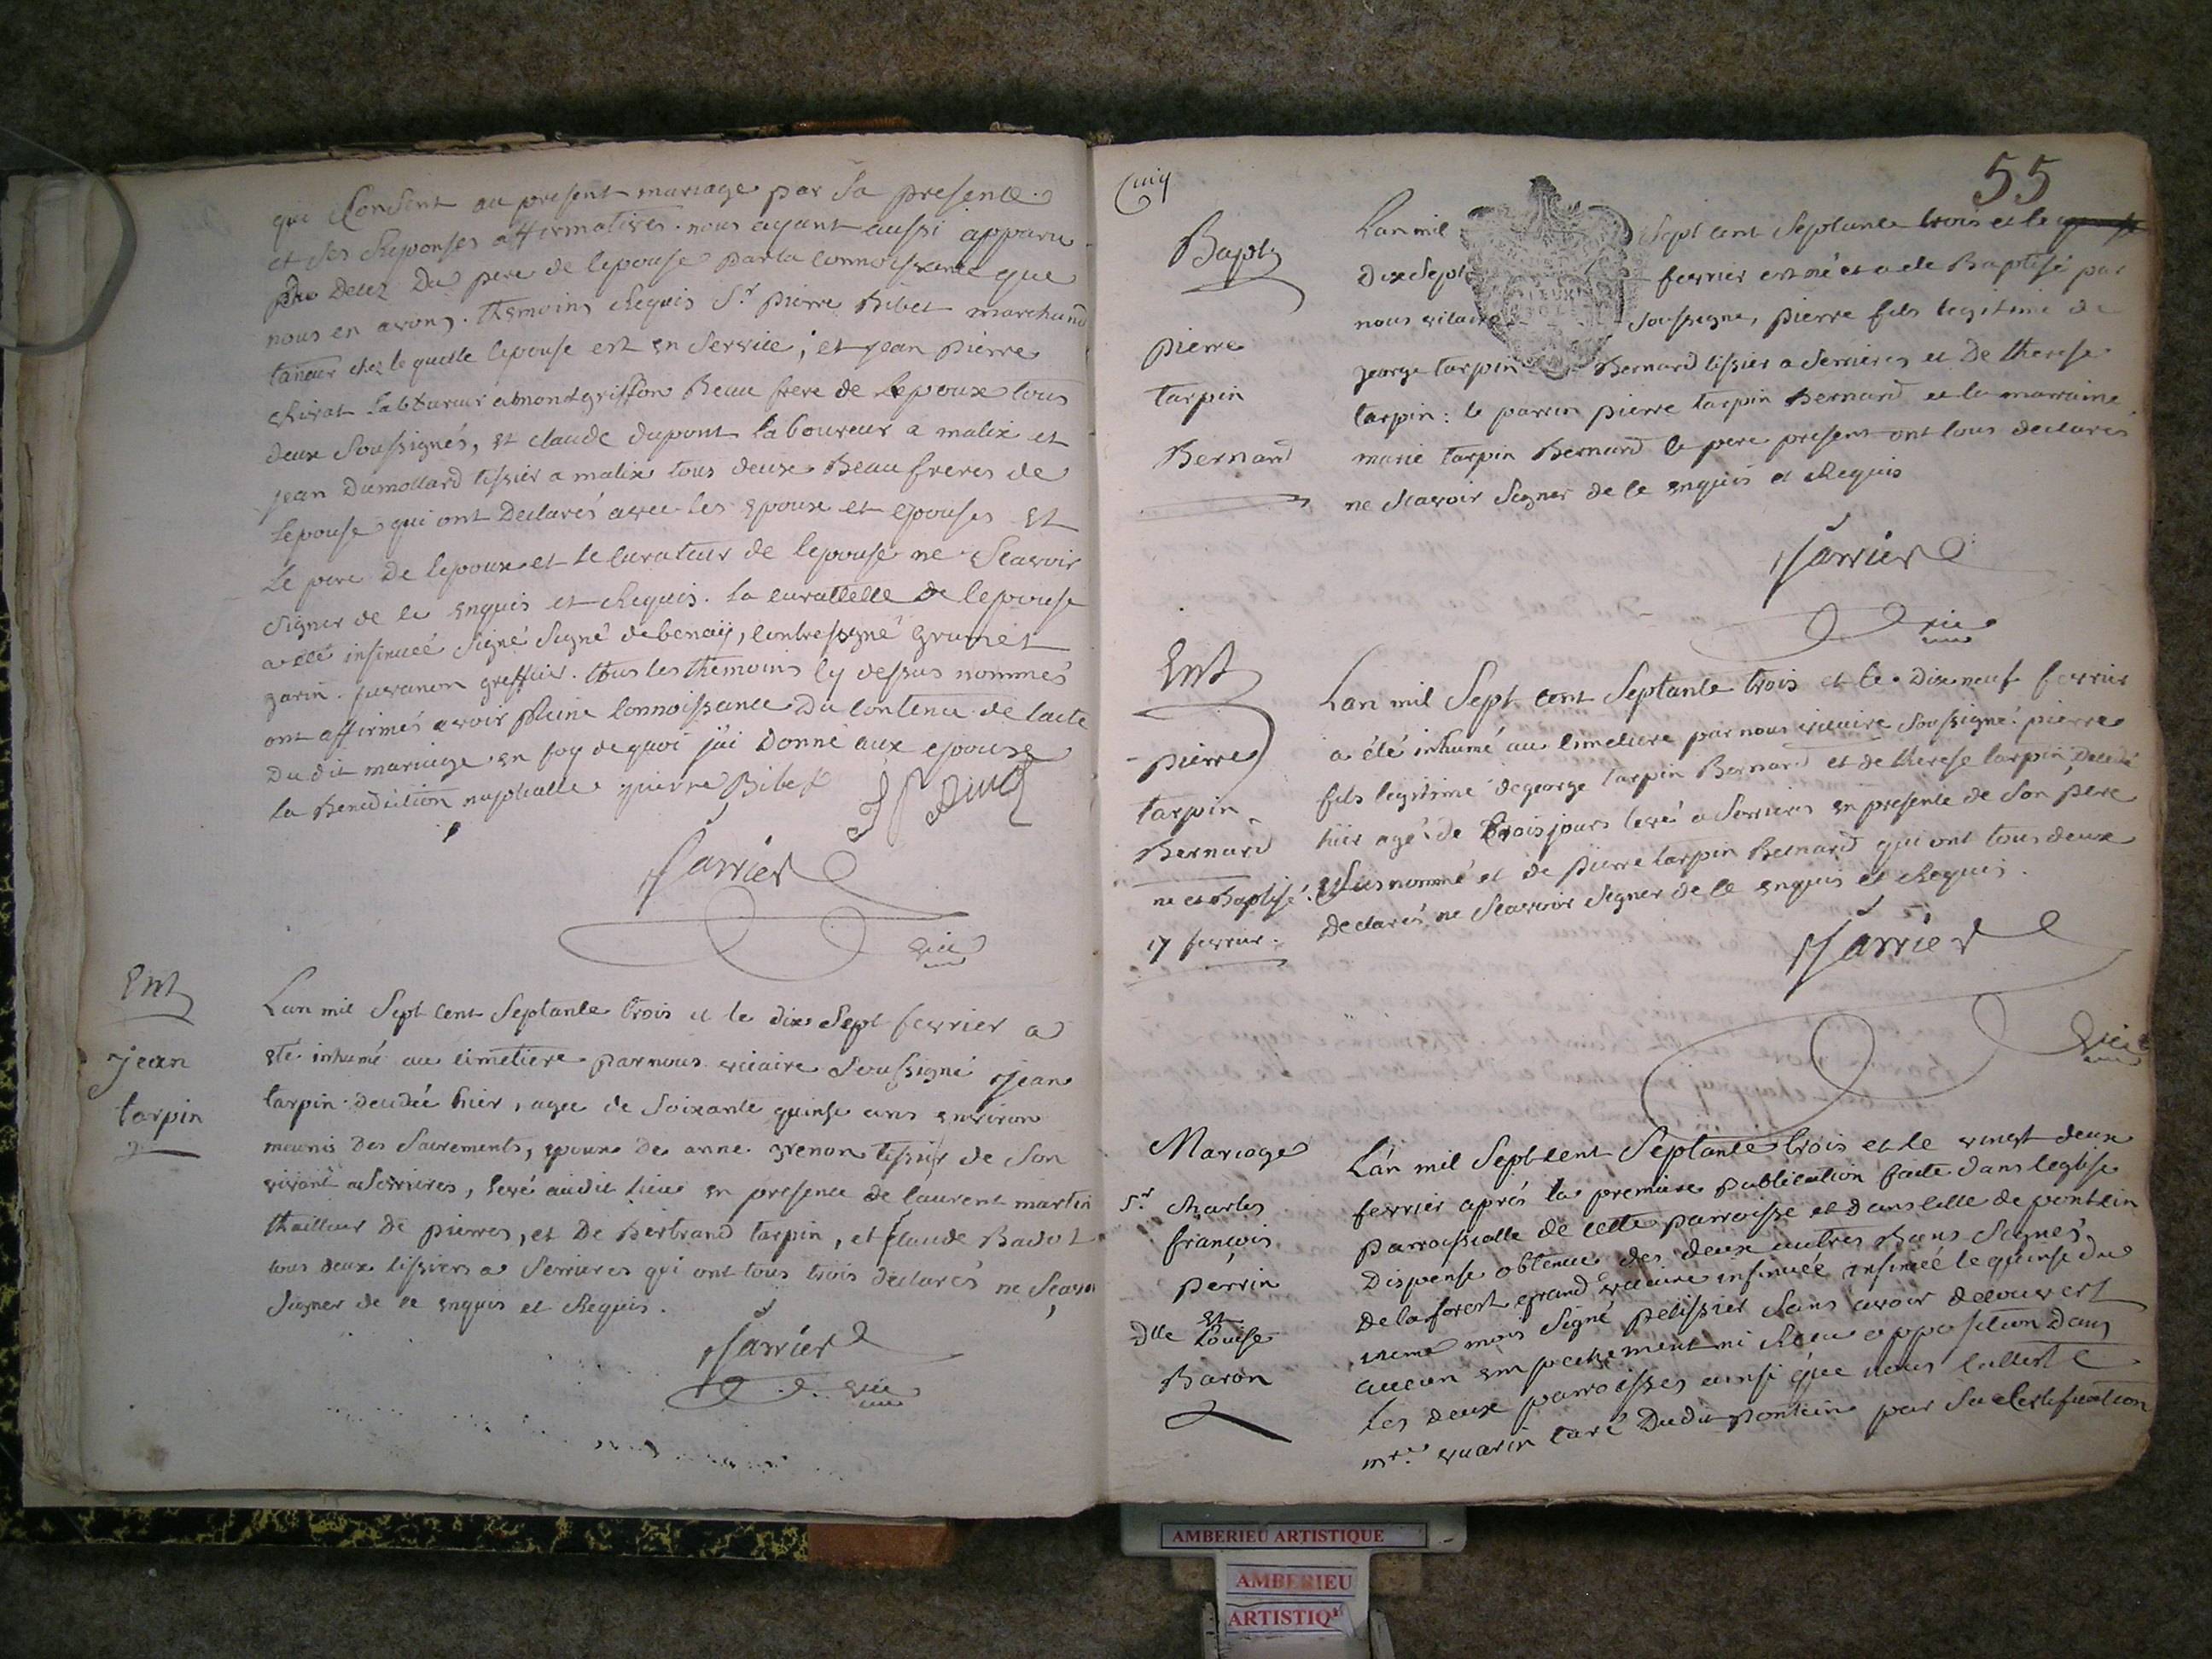 qui Consent au present mariage par sa presence
et ses Reponses affirmatives. nous ayant aussi apparu
Du Decez Du pere de lepouse par la connoissance que
nous en avons. themoins Requis Sr. pierre Bibet marchand
taneur chez le quelle lepouse est en service, et jean pierre
labbureur a montgriffon Beau frere de lepoux tous
deux soussignés, et claude dupont laboureur a malix et
jean Dumollard tissier a malix tous deux Beau freres de
Lepouse qui ont Declarés avec les epoux et epouses et
Le pere de lepoux et le curateur de lepouse ne Scavoir
signer de ce enquis et Requis. la curattelle de lepouse
a été insinueé signé signé debenaÿ, contresigné Grumet
greffier. tous les themoins cy dessus nommés
ont affirmés avoir pleine connoissance Du contenu de lacte
Du dit mariage en foy de quoi j'ai Donné aux epoux
la Benediction nuptialle pierre Bibet
Jarrier
vic
Ent
jean
tarpin
Lan mil Sept cent Septante trois et le dix Sept fevrier a
eté inhumé au cimetiere par nous vicaire Soussigné jean
tarpin decedée hier, agee de soixante quinse ans environ
meunis des Sacrements, epoux de anne grenon tissier de son
vivant a Serrieres, levé audit lieu en presence de laurent martin
thailleur de pierres, et De Bertrand tarpin, et Claude Badot
tous deux tissiers a Serrieres qui ont tous trois declarés ne Scavoi
signer de ce enquis et Requis.
Jarrier
vic
55
Bapt
pierre
tarpin
Bernard
Lan mil Sept cent Septante trois et le
dix Sept fevrier est né et a ete Baptisé par
nous vicaire Soussigné, pierre fils legitime de
george tarpin Bernard tissier a Serrieres et De therese
tarpin: le parrin pierre tarpin Bernard et la marraine
marie tarpin Bernard le pere present ont tous declarés
ne scavoir signer de ce enquis et Requis
Jarrier
vic
Ent
pierre
tarpin
Bernard
ne et Baptisé
17 fevrier.
Lan mil Sept cent Septante trois et le dix neuf fevrier
a été inhumé au cimetiere par nous vicaire Soussigné pierre
fils legitime de george tarpin Bernard et de therese tarpin Decedé
hier agé de trois jours levé a Serrieres en presence de son pere
susnommé et de pierre tarpin Bernard qui ont tous deux
declarés ne Scavoir signer de ce enquis et Requis.
Jarrier
vic
Mariage
Sr. charles
françois
perrin
et
Dlle Louise
Baron
L'an mil Sept cent Septante trois et le vingt deux
fevrier aprés la premiere publication faite dans leglise
parroissialle de cette parroisse et dans celle de pontcin
Dispense obtenue des deux autres Bans signés,
De la forest grand vicaire insinuée insinueé le quinse du
meme mois signé pelissier sans avoir decouvert
aucun empechement ni Recu opposition dans
Les deux parroisses ainsi que nous l'atteste
mre. vuarin curé Dudit pontcin par sa certification
AMBERIEU ARTISTIQUE
AMBERIEU
ARTISTIQ